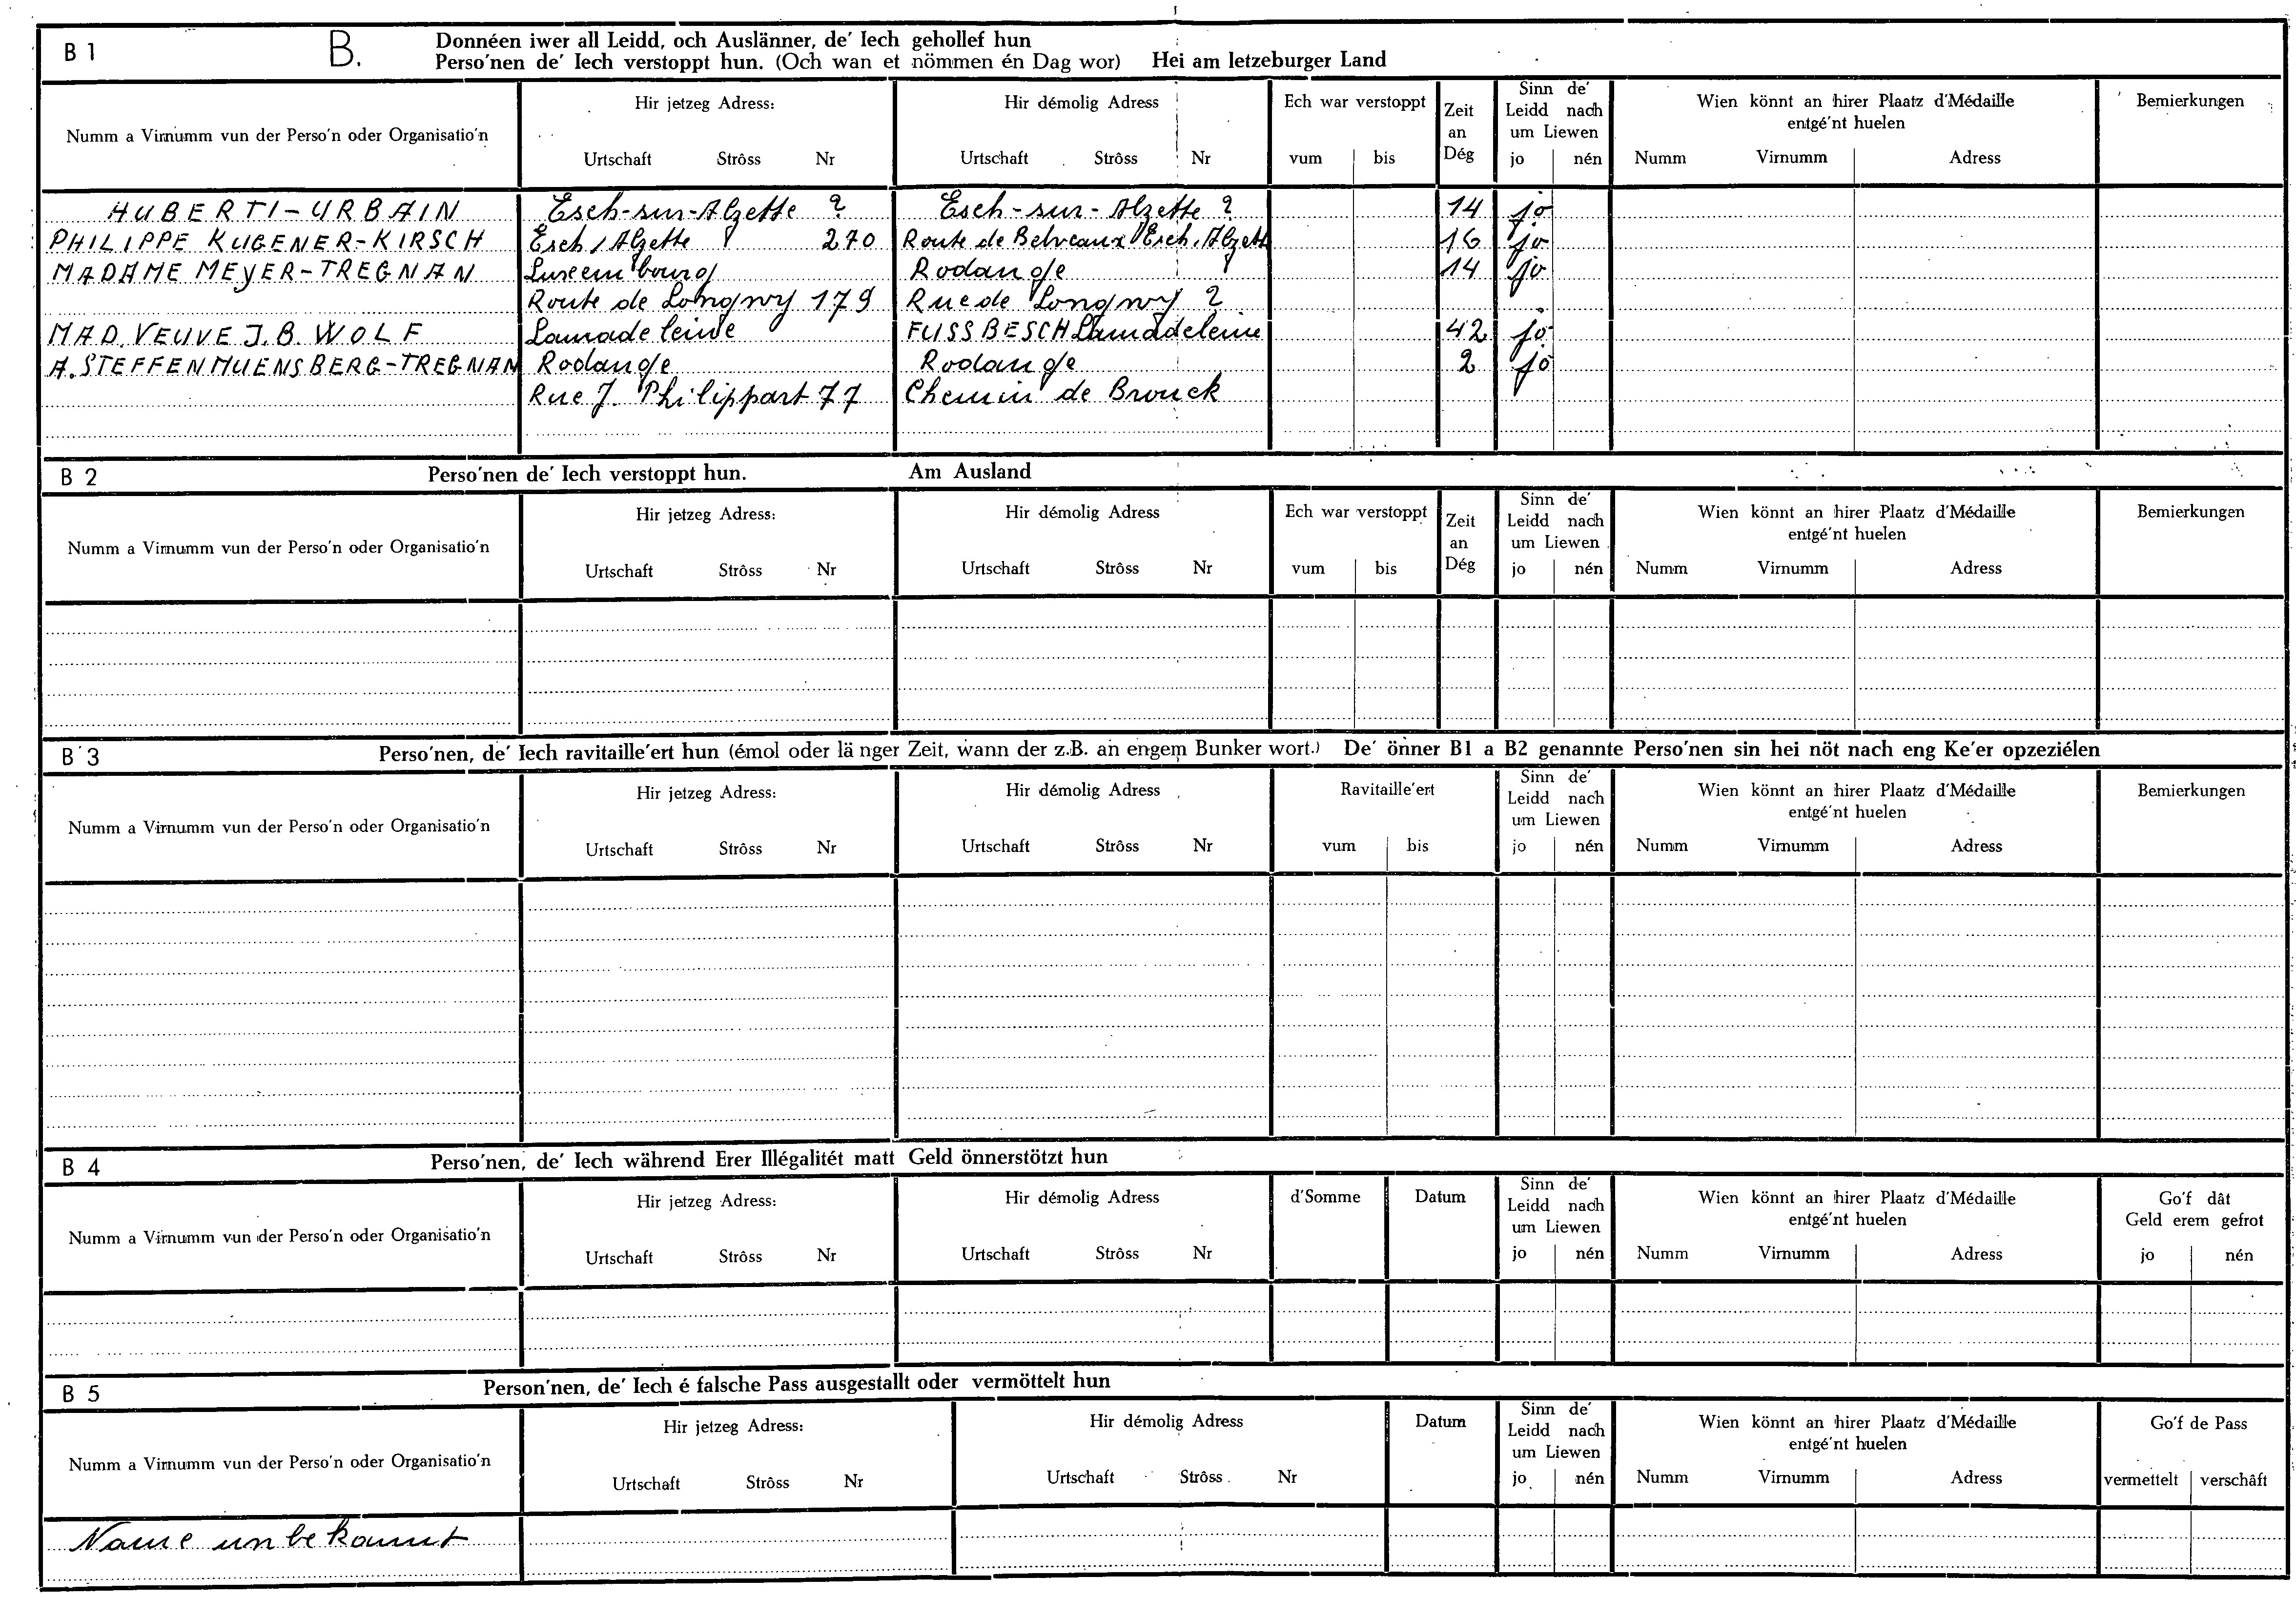 B 1 B. Donnéen iwer all Leidd, och Auslänner, de' Iech gehollef hun
Perso'nen de' Iech verstoppt hun. (Och wan et nömmen én Dag wor) Hei am letzeburger Land
Numm a Virnumm vun der Perso'n oder Organisatio'n
Hir jetzeg Adress:
Urtschaft Strôss Nr
Hir démolig Adress
Urtschaft Strôss Nr
Ech war verstoppt
vum bis
Zeit
an
Dég
Sinn de'
Leidd nach
um Liewen
jo nén
Wien könnt an hirer Plaatz d'Médaille
entgé'nt huelen
Numm Virnumm Adress
Bemierkungen
HUBERTI-URBAIN Esch-sur-Alzette ? Esch-sur-Alzette ? 14 jo
PHILIPPE KUGENER-KIRSCH Esch/Alzette 270 Route de Belveaux Esch/Alzette 16 jo
MADAME MEYER-TREGNAN Luxembourg Rodange 14 jo
Route de Longwy 179 Rue de Longwy ?
MAD. VEUVE J.B. WOLF Lamadeleine FUSSBESCH Lamadeleine 42 jo
A. STEFFENMUENSBERG-TREGNAN Rodange Rodange 2 jo
Rue J. Philippart 77 Chemin de Brouck
B 2 Perso'nen de' Iech verstoppt hun. Am Ausland
Numm a Virnumm vun der Perso'n oder Organisatio'n
Hir jetzeg Adress:
Urtschaft Strôss Nr
Hir démolig Adress
Urtschaft Strôss Nr
Ech war verstoppt
vum bis
Zeit
an
Dég
Sinn de'
Leidd nach
um Liewen
jo nén
Wien könnt an hirer Plaatz d'Médaille
entgé'nt huelen
Numm Virnumm Adress
Bemierkungen
B 3 Perso'nen, de' Iech ravitaille'ert hun (émol oder länger Zeit, wann der z.B. an engem Bunker wort.) De' önner B1 a B2 genannte Perso'nen sin hei nöt nach eng Ke'er opzeziélen
Numm a Virnumm vun der Perso'n oder Organisatio'n
Hir jetzeg Adress:
Urtschaft Strôss Nr
Hir démolig Adress
Urtschaft Strôss Nr
Ravitaille'ert
vum bis
Sinn de'
Leidd nach
um Liewen
jo nén
Wien könnt an hirer Plaatz d'Médaille
entgé'nt huelen
Numm Virnumm Adress
Bemierkungen
B 4 Perso'nen, de' Iech während Erer Illégalitét matt Geld önnerstötzt hun
Numm a Virnumm vun der Perso'n oder Organisatio'n
Hir jetzeg Adress:
Urtschaft Strôss Nr
Hir démolig Adress
Urtschaft Strôss Nr
d'Somme
Datum
Sinn de'
Leidd nach
um Liewen
jo nén
Wien könnt an hirer Plaatz d'Médaille
entgé'nt huelen
Numm Virnumm Adress
Go'f dât
Geld erem gefrot
jo nén
B 5 Person'nen, de' Iech é falsche Pass ausgestallt oder vermöttelt hun
Numm a Virnumm vun der Perso'n oder Organisatio'n
Hir jetzeg Adress:
Urtschaft Strôss Nr
Hir démolig Adress
Urtschaft Strôss Nr
Datum
Sinn de'
Leidd nach
um Liewen
jo nén
Wien könnt an hirer Plaatz d'Médaille
entgé'nt huelen
Numm Virnumm Adress
Go'f de Pass
vermettelt verschâft
Name unbekannt